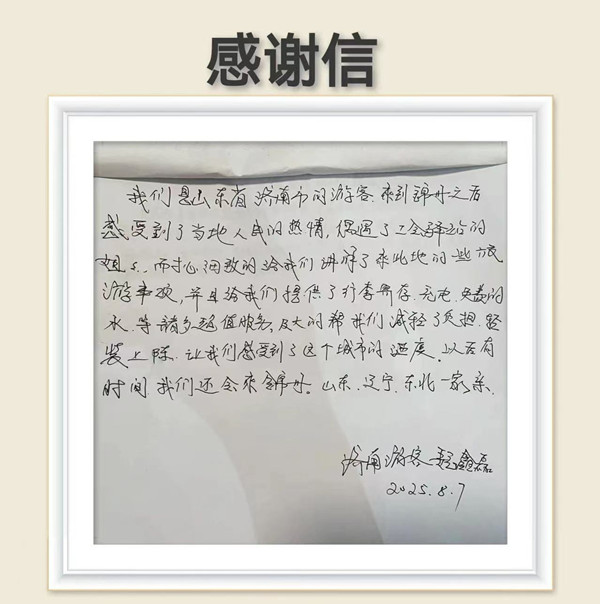 感谢信
我们是山东省济南市的游客.来到锦州之后
感受到了当地人民的热情,偶遇了工会驿站的
姐姐.耐心细致的给我们讲解了来此地的一些方便
游事项,并且给我们提供了行李寄存.充电.免费的
水.等诸多超值服务.极大的帮我们减轻了负担.轻
装上阵.让我们感受到了这个城市的温度.以后有
时间我们还会来锦州。山东.辽宁.东北一家亲.
济南游客 鑫磊
2025.8.7